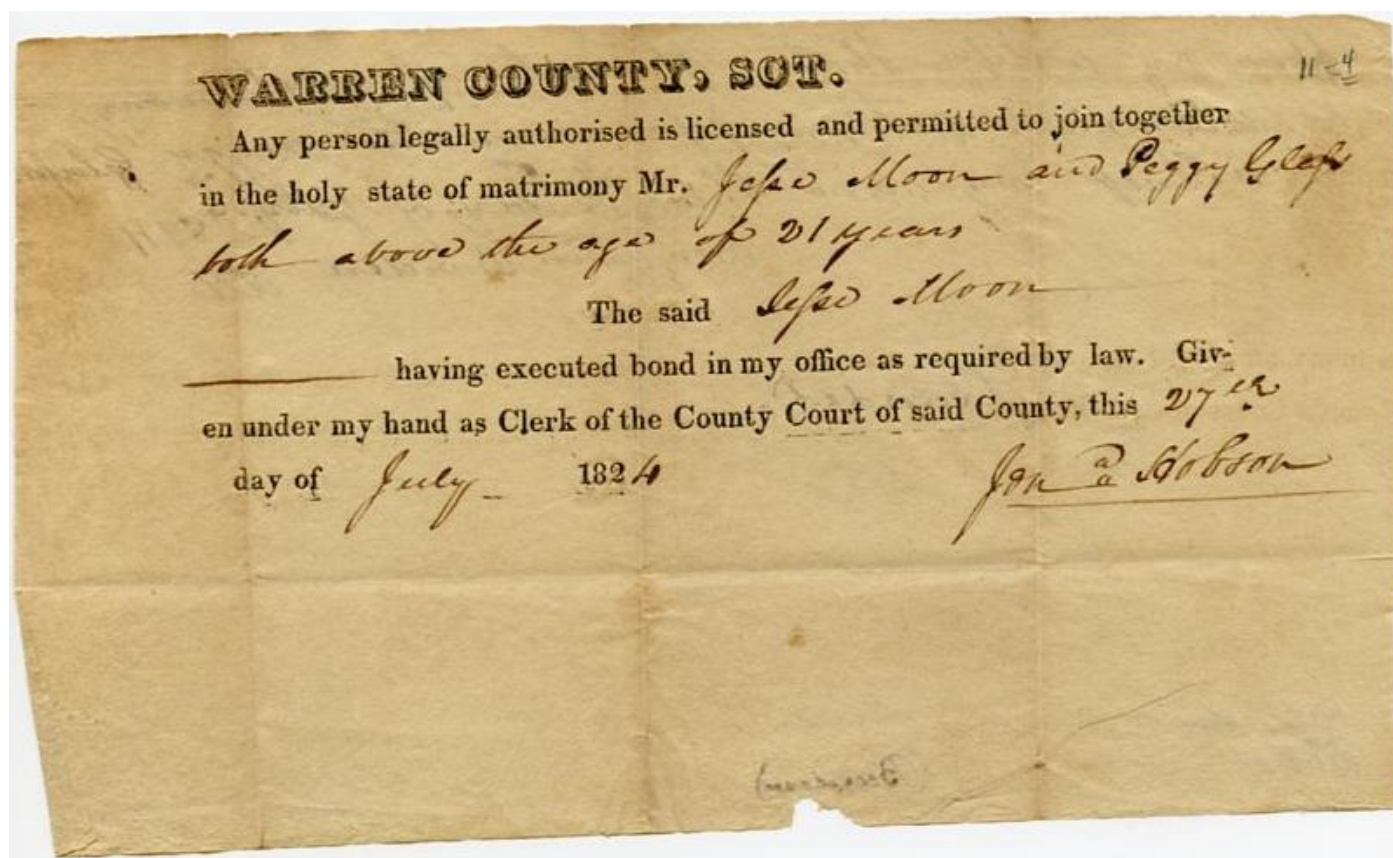 WARREN COUNTY, SCT.
11-4
Any person legally authorised is licensed and permitted to join together
in the holy state of matrimony Mr. Jesse Moon and Peggy Glass
both above the age of 21 years
The said Jesse Moon
having executed bond in my office as required by law. Giv-
en under my hand as Clerk of the County Court of said County, this 27th
day of July 1824
Jon Hobson